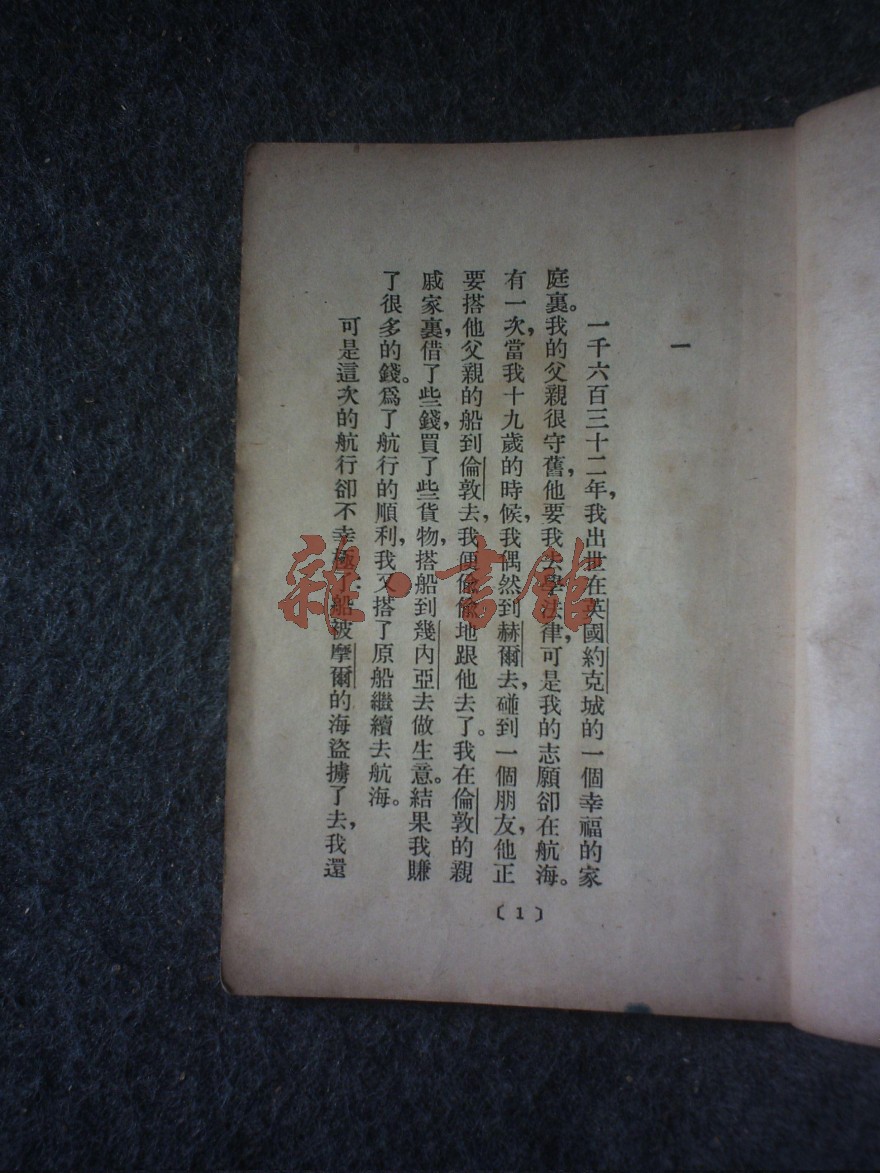 一
一千六百三十二年，我出世在英國約克城的一個幸福的家
庭裏。我的父親很守舊，他要我去學法律，可是我的志願卻在航海。
有一次，當我十九歲的時候，我偶然到赫爾去，碰到一個朋友，他正
要搭他父親的船到倫敦去，我便偷偷地跟他去了。我在倫敦的親
戚家裏，借了些錢，買了些貨物，搭船到幾內亞去做生意。結果我賺
了很多的錢。爲了航行的順利，我又搭了原船繼續去航海。
可是這次的航行卻不幸極了，船被摩爾的海盜擄了去，我還
〔1〕
雜·書館